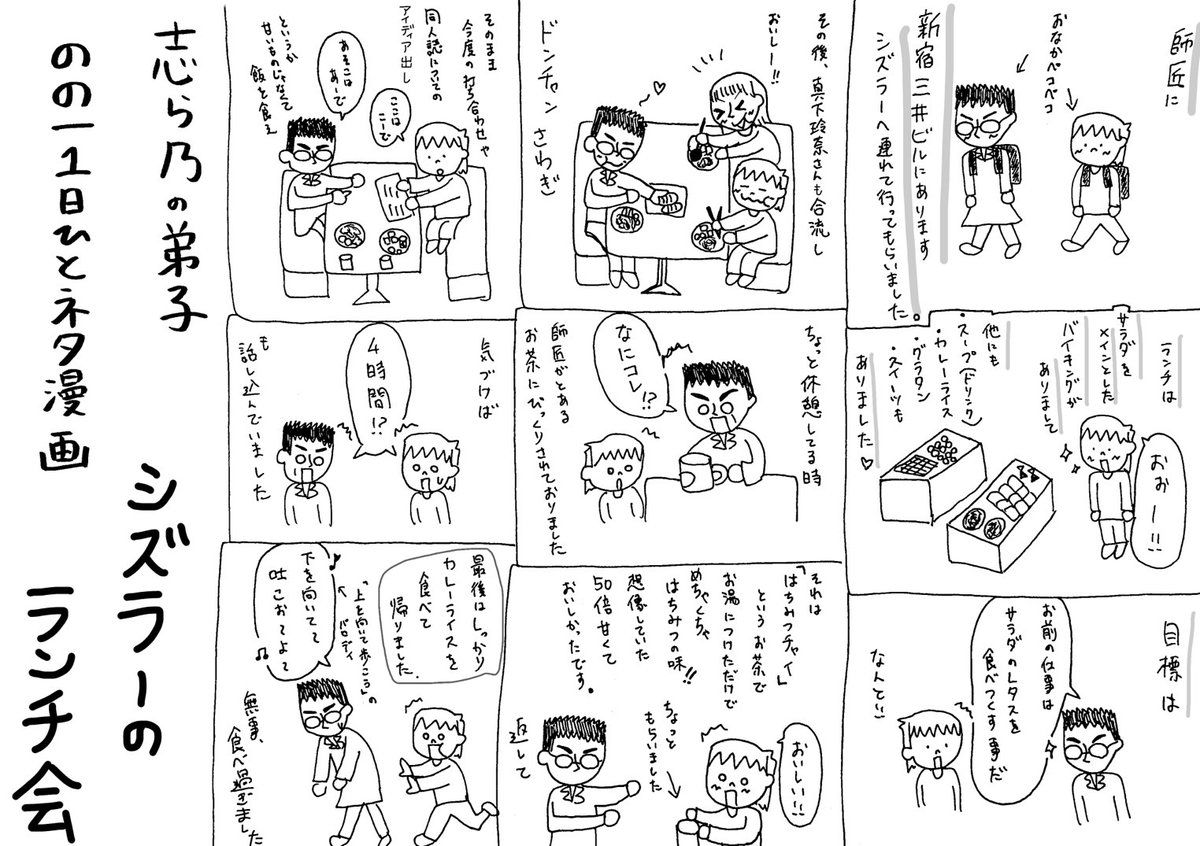 師匠に
おなかペコペコ
新宿三井ビルにあります
シズラーへ連れて行ってもらいました。
ランチは
サラダを
メインとした
バイキングが
ありまして
他にも
・スープ(ドリンク)
・カレーライス
・グラタン
・スイーツも
ありました♡
おおー!!
目標は
お前の仕事は
サラダのレタスを
食べつくす事だ
なんとい
その後、真下玲奈さんも合流し
おいしー!!
ドンチャンさわぎ
ちょっと休憩してる時
なにコレ!?
師匠がとある
お茶にびっくりされておりました
それは
「はちみつチャイ」
というお茶で
お湯につけただけで
めちゃくちゃ
はちみつの味!!
想像していた
50倍甘くて
おいしかったです。
おいしい!!
ちょっと
もらいました
返して
そのまま
今度の打ち合わせや
同人誌についての
アイディア出し
ここは
こーで
あそこは
あーで
というか
甘いものじゃなくて
飯を食え
気づけば
4時間!?
も
話し込んでいました
最後はしっかり
カレーライスを
食べて
帰りました
「上を向いて歩こう」の
パロディ
下を向いてて
吐こおてよて
無事、
食べ過ぎました
志ら乃の弟子
のの一1日ひとネタ漫画
シズラーの
ランチ会